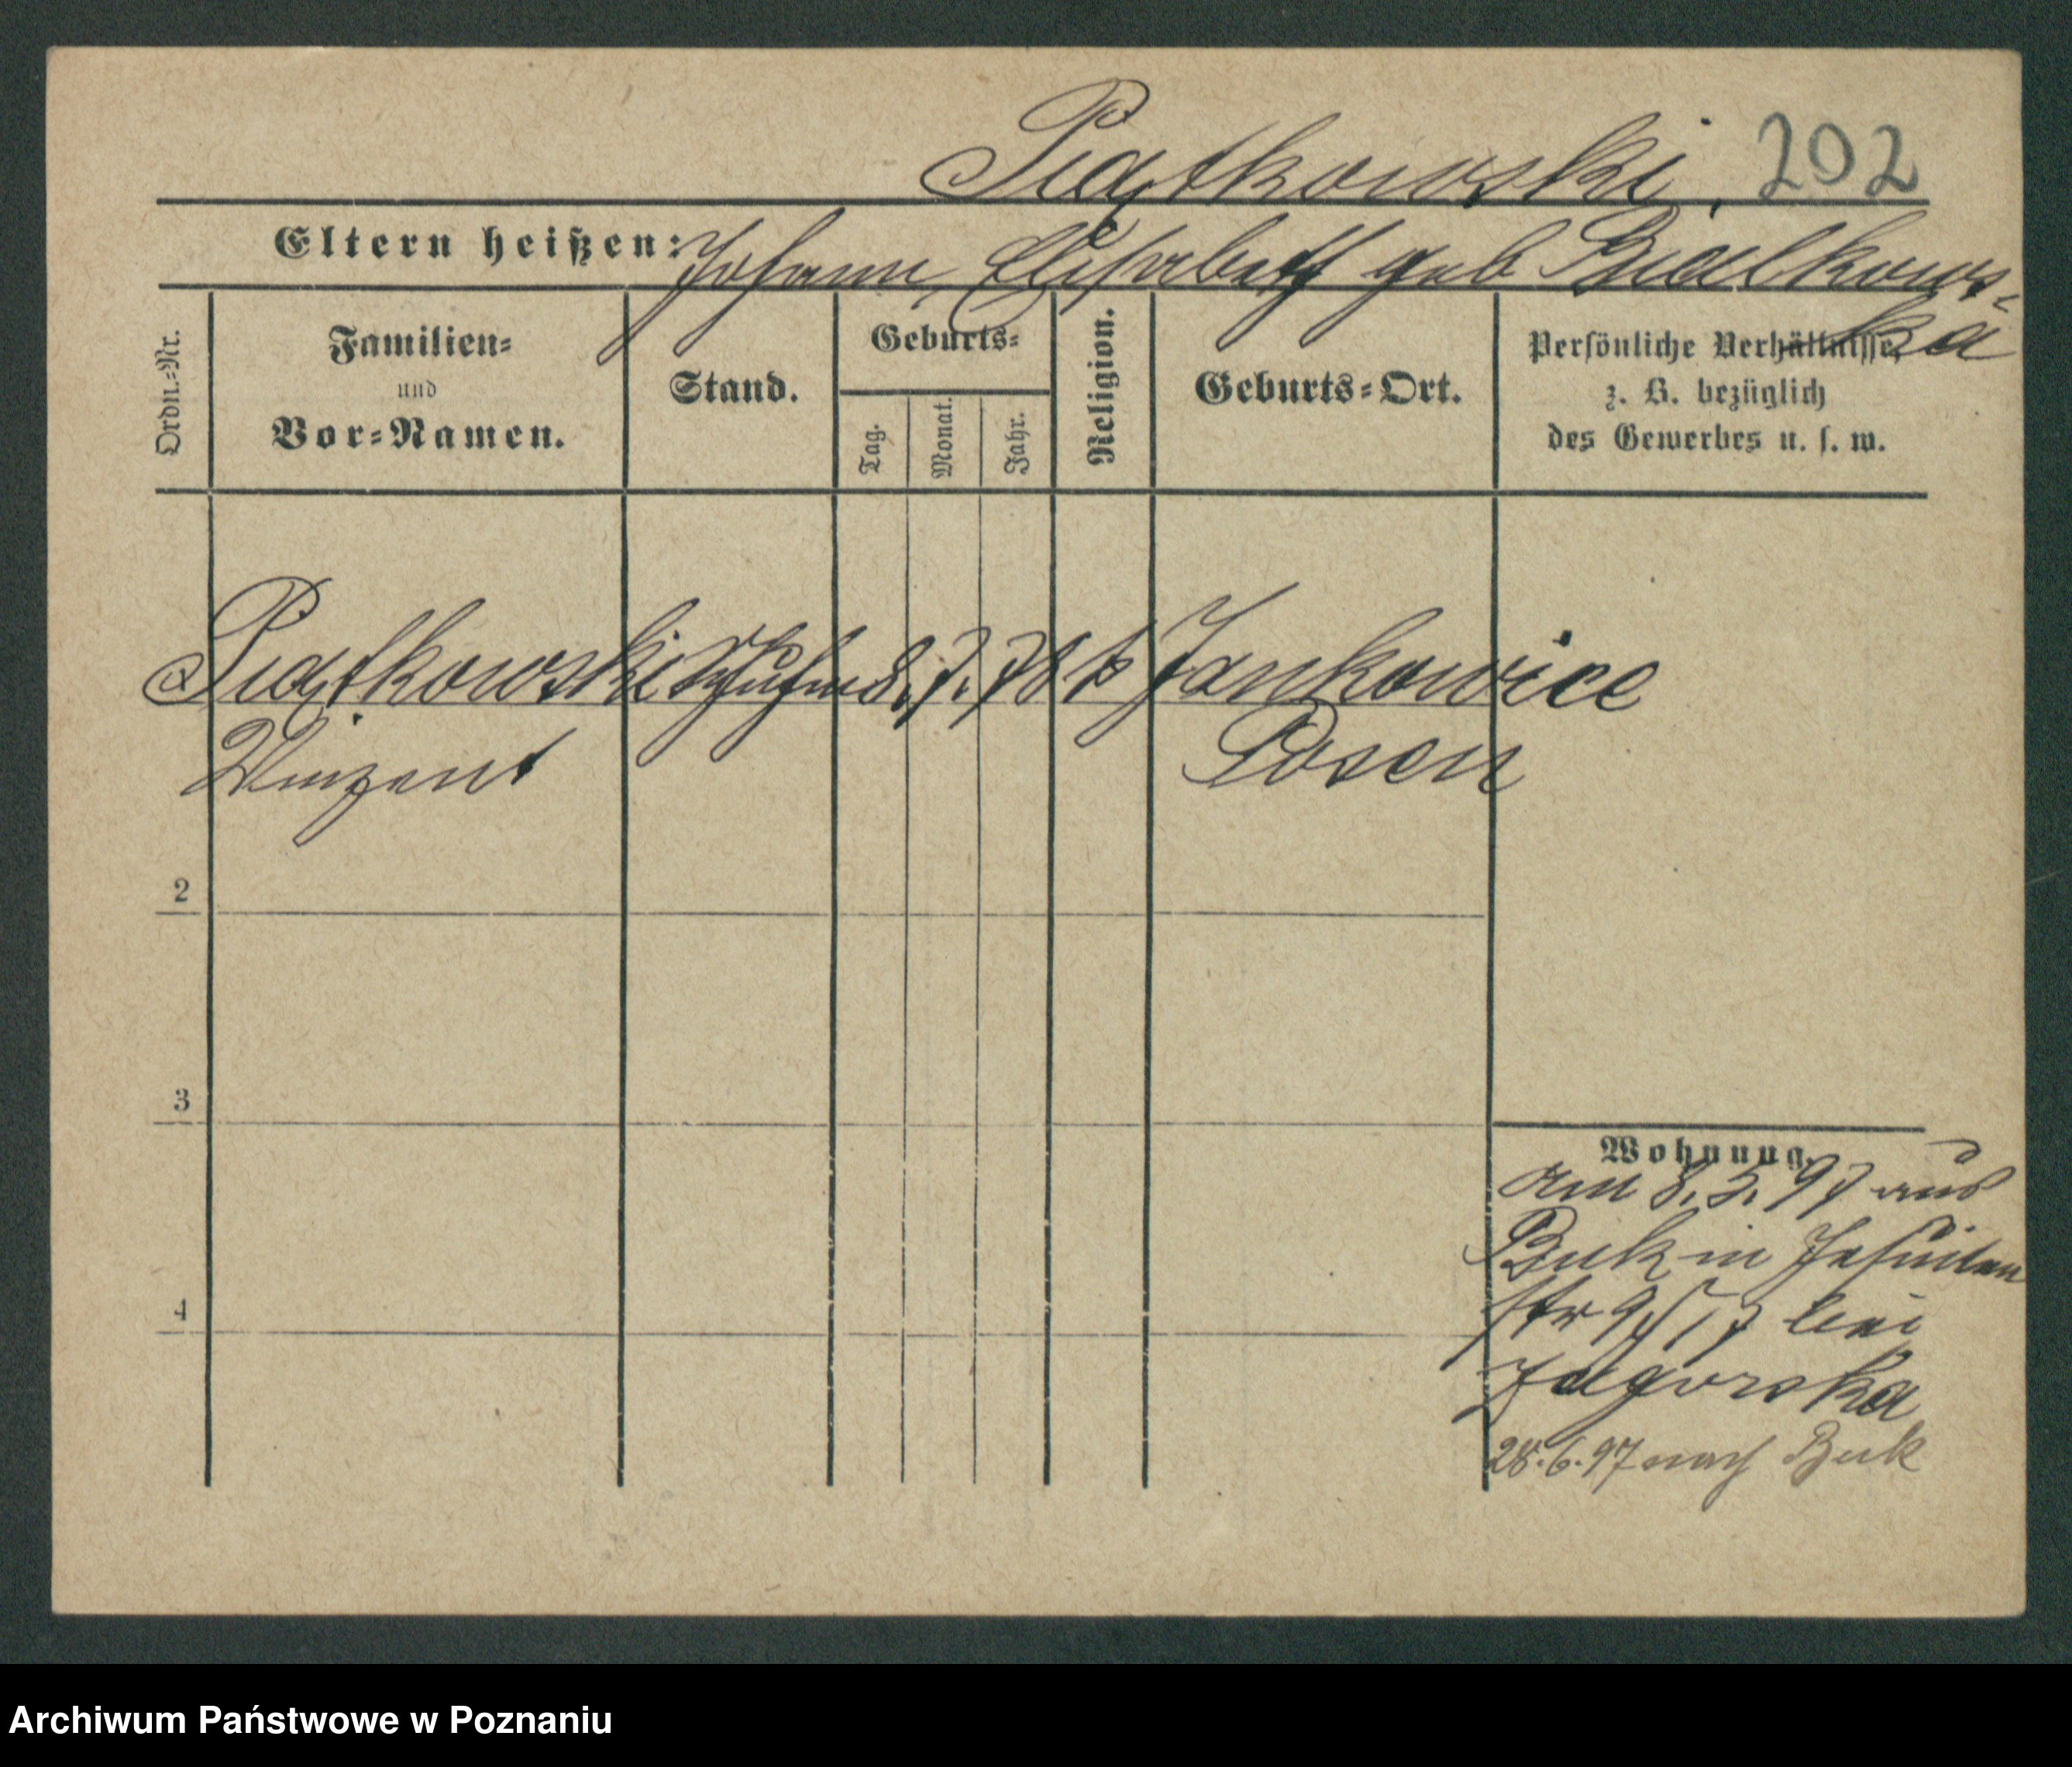 Piątkowski, 202
Eltern heißen: Johann, Elisabeth geb Bialkows-
ka
Ordn.-Nr.
Familien-
und
Vor-Namen.
Stand.
Geburts-
Tag.
Monat.
Jahr.
Religion.
Geburts-Ort.
Persönliche Verhältnisse,
z. B. bezüglich
des Gewerbes u. s. w.
Piątkowski 8. 7. 78 k Jankowice
Vinzent Posen
2
3
4
Wohnung.
am 8. 5. 97 aus
Buk in Jesuiten
str bei
Zagorska
28.6.97 nach Buk
Archiwum Państwowe w Poznaniu